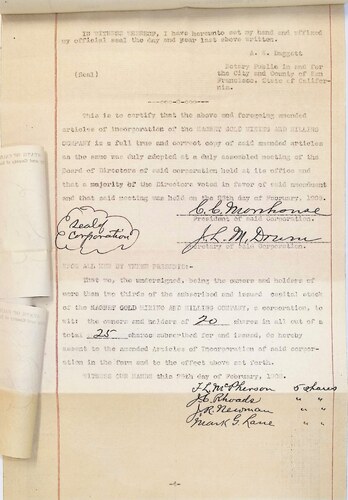 IN WITNESS WHEREOF, I have hereunto set my hand and affixed
my official seal the day and year last above written.
A. K. Daggett
(Seal)
Notary Public in and for
the City and County of San
Francisco, State of Califor-
nia.
This is to certify that the above and foregoing amended
articles of incorporation of the MAGNET GOLD MINING AND MILLING
COMPANY is a full true and correct copy of said amended articles
as the same was duly adopted at a duly assembled meeting of the
Board of Directors of said corporation held at its office and
that a majority of the Directors voted in favor of said amendment
and that said meeting was held on the day of February,
C. C. Morehouse
President of said Corporation.
Seal of
Corporation
J. L. M. Drum
Secretary of said Corporation.
KNOW ALL MEN BY THESE PRESENTS:-
That we, the undersigned, being the owners and holders of
more than two thirds of the subscribed and issued capital stock
of the MAGNET GOLD MINING AND MILLING COMPANY, a corporation, to
wit: the owners and holders of 20 shares in all out of a
total 25 shares subscribed for and issued, do hereby
assent to the amended Articles of Incorporation of said corpor-
ation in the form and to the effect above set forth.
WITNESS OUR HANDS this day of February,
J. L. McPherson 5 shares
J. C. Rhoads " "
J. R. Newman " "
Mark G. Lane " "